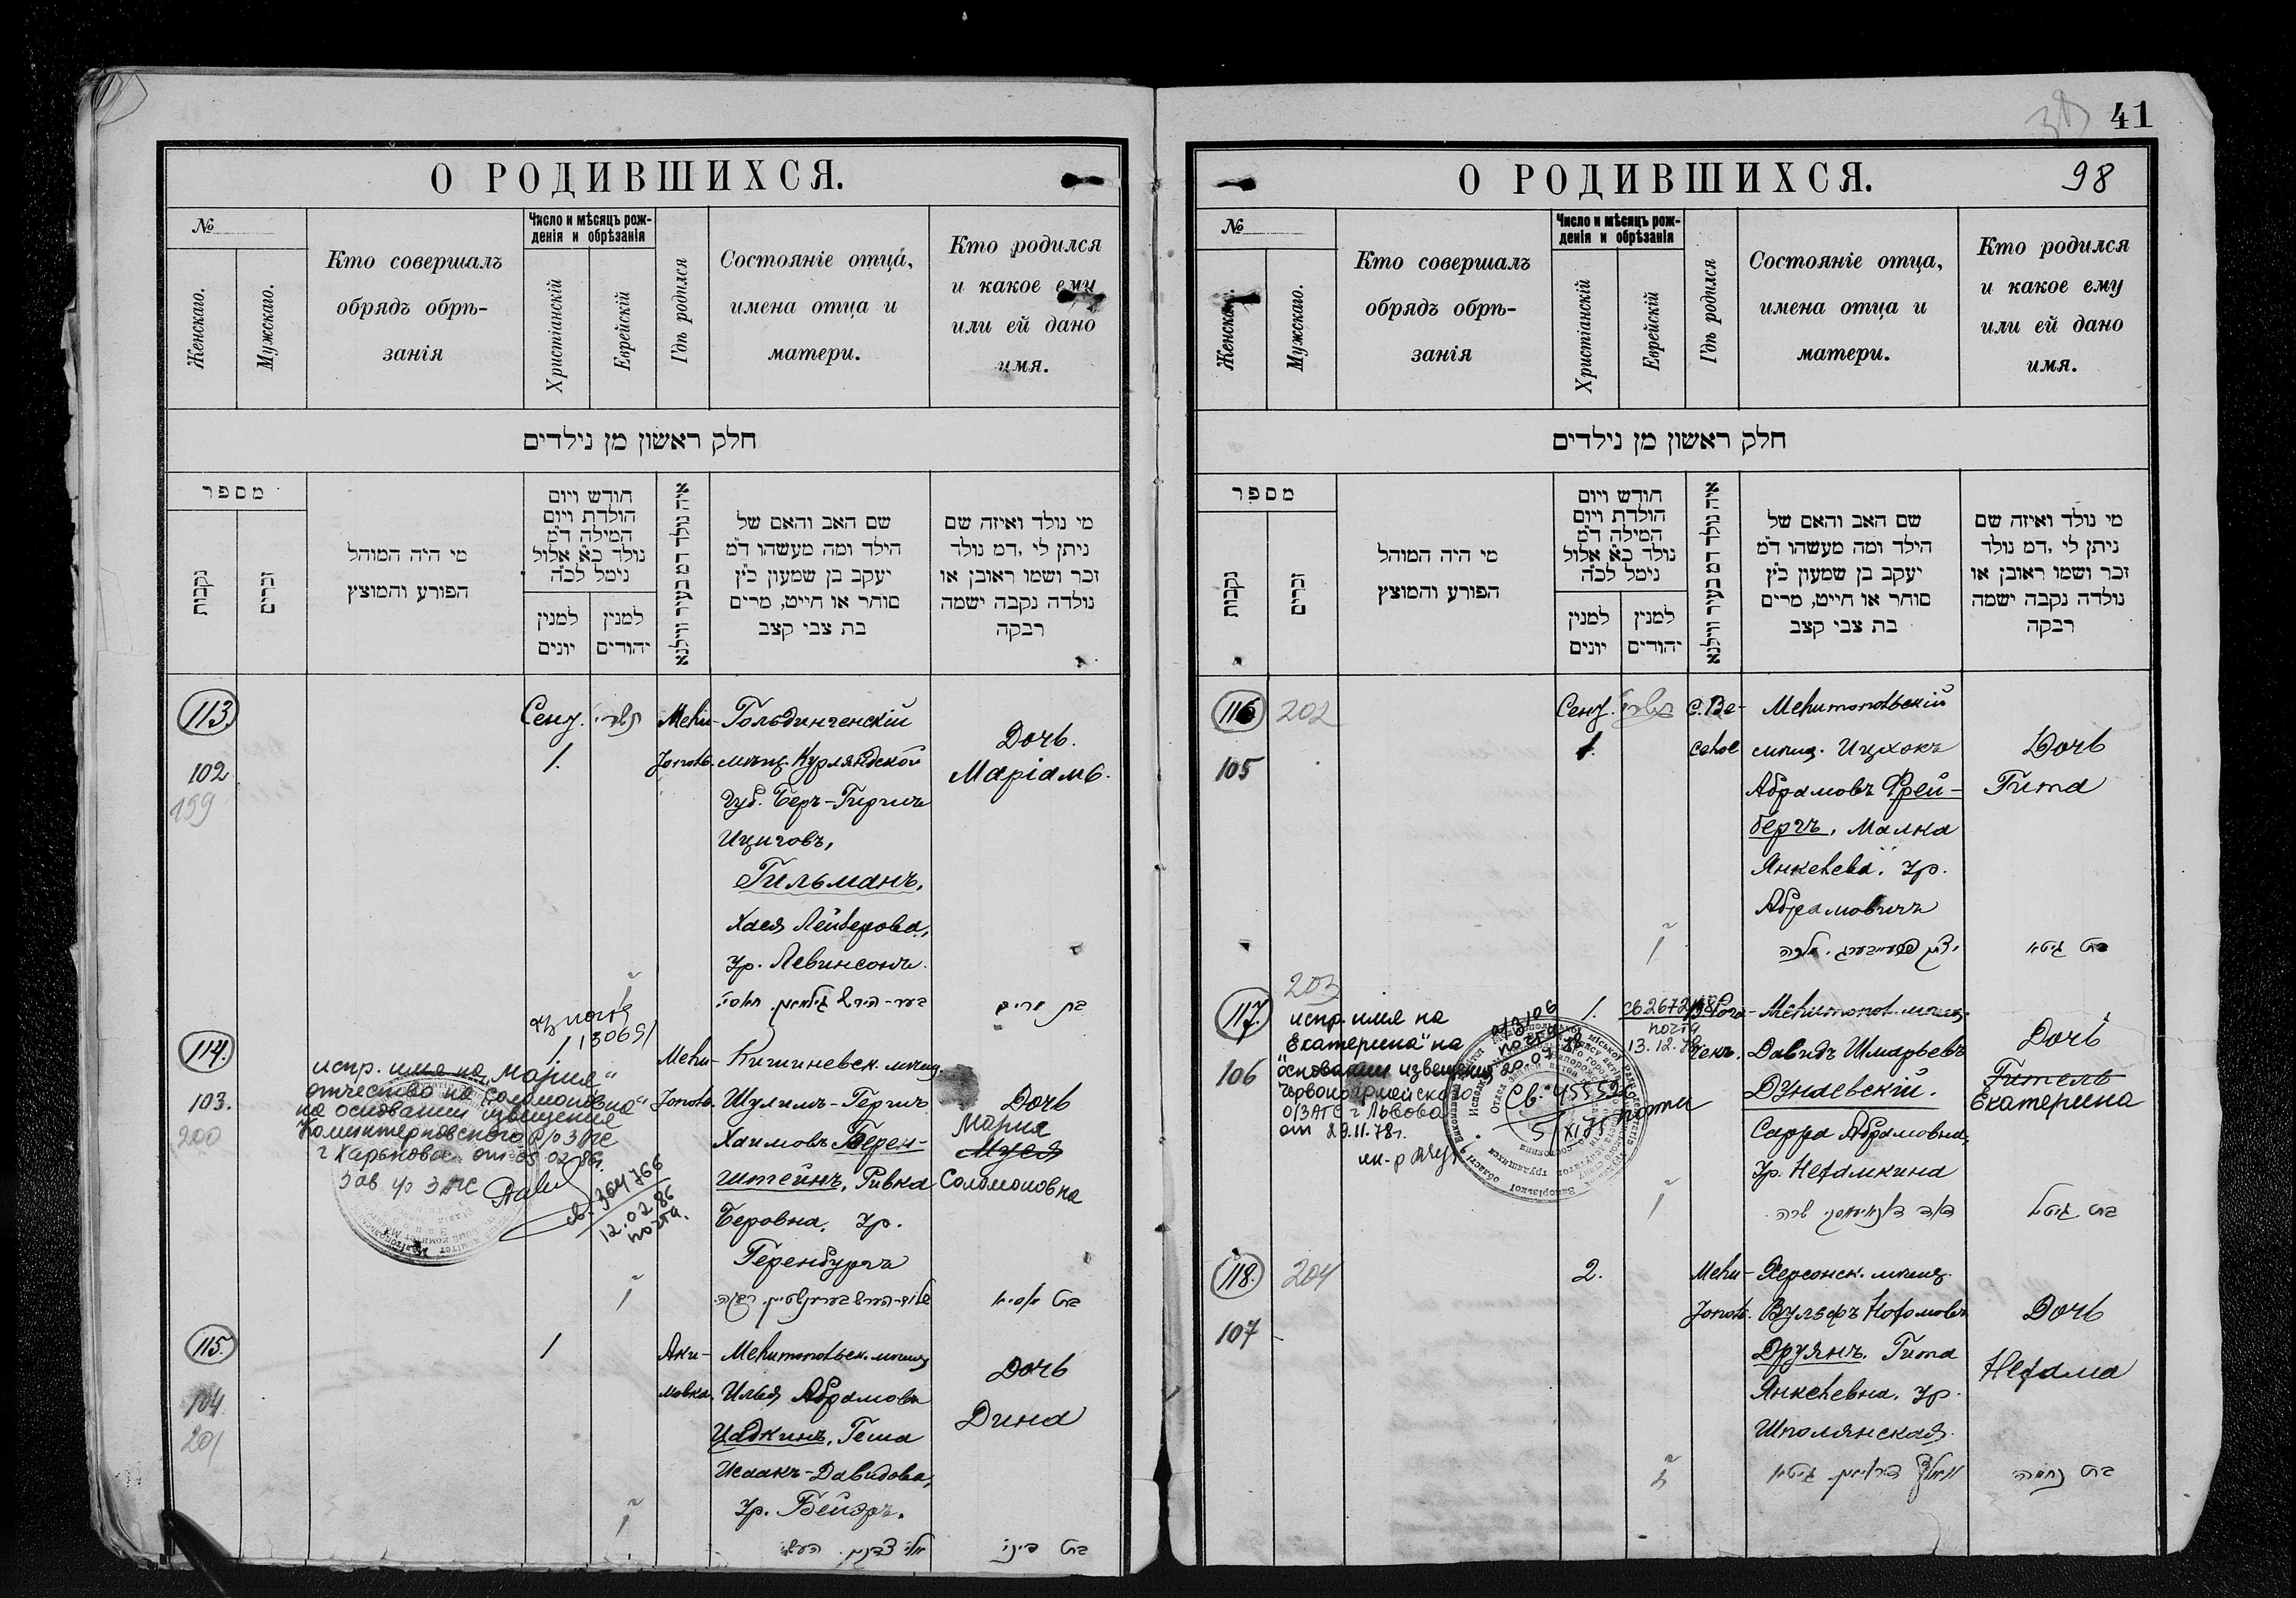 О РОДИВШИХСЯ.
№
Женскаго.
Мужскаго.
Кто совершалъ
обрядъ обрѣ-
занія
Число и мѣсяцъ рож-
денія и обрѣзанія
Христіанскій
Еврейскій
Гдѣ родился
Состояніе отца,
имена отца и
матери.
Кто родился
и какое ему
или ей дано
имя.
חלק ראשון מן נילדים
מספר
נקבות
זכרים
מי היה המוהל
הפורע והמוצץ
חודש ויום
הולדת ויום
המילה ד״מ
נולד כ״א אלול
נימל לכ״ה
למנין
יונים
למנין
יהודים
איה נולד דמ בעיר ווילנא
שם האב והאם של
הילד ומה מעשהו ד״מ
יעקב בן שמעון כ״ץ
סוחר או חייט, מרים
בת צבי קצב
מי נולד ואיזה שם
ניתן לי, דמ נולד
זכר ושמו ראובן או
נולדה נקבה ישמה
רבקה
113.
102
199
Сент.
1.
תשרי
Мели-
тополь.
Гольдингенскій
мѣщ. Курляндской
губ. Беръ-Гиршъ
Ициговъ,
Гильманъ,
Хася Лейзерова,
ур. Левинсонъ.
Дочь.
Маріамъ.
בת מרים
114.
103.
200
испр. имя на „Мария"
отчество на „Соломоновна"
на основании извещения
Коминтерновского р/о ЗАГС
г Харькова от 05 02.86г.
Зав г/о ЗАГС
св. 364766
12.02.86
почта.
1.
Мели-
тополь.
Кишиневск. мѣщ.
Шулимъ-Гершъ
Хаимовъ Берен-
штейнъ, Ривка
Беровна, ур.
Геренбургъ
Дочь
Мария
Муся
Соломоновна
115.
104
201
1
Аки-
мовка.
Мелитопольск. мѣщ.
Илья Абрамовъ
Цадкинъ, Геша
Исаакъ-Давидова,
ур. Бейзръ.
Дочь
Дина
41
О РОДИВШИХСЯ.
98
№
Женскаго.
Мужскаго.
Кто совершалъ
обрядъ обрѣ-
занія
Число и мѣсяцъ рож-
денія и обрѣзанія
Христіанскій
Еврейскій
Гдѣ родился
Состояніе отца,
имена отца и
матери.
Кто родился
и какое ему
или ей дано
имя.
חלק ראשון מן נילדים
מספר
נקבות
זכרים
מי היה המוהל
הפורע והמוצץ
חודש ויום
הולדת ויום
המילה ד״מ
נולד כ״א אלול
נימל לכ״ה
למנין
יונים
למנין
יהודים
איה נולד דמ בעיר ווילנא
שם האב והאם של
הילד ומה מעשהו ד״מ
יעקב בן שמעון כ״ץ
סוחר או חייט, מרים
בת צבי קצב
מי נולד ואיזה שם
ניתן לי, דמ נולד
זכר ושמו ראובן או
נולדה נקבה ישמה
רבקה
116
202
105
Сент.
1.
תשרי
С. Ве-
селое
Мелитопольскій
мѣщ. Ицхокъ
Абрамовъ Фрей-
бергъ, Малка
Янкелева, ур.
Абрамовичъ
Дочь
Гита
117.
203
106
испр. имя на
"Екатерина" на
основании извещения
Червоноармейского
о/ЗАГС г Львова
от 29.11.78г.
1.
почта
13.12.78
Св. 455526
5/XI 75
почта
Мелитопол. мѣщ.
Давидъ Шмарьевъ
Дунаевскій.
Сарра Абрамовна,
ур. Нехамкина
Дочь
Гитель
Екатерина
118.
204
107
2.
Мели-
тополь.
Херсонск. мѣщ.
Вульфъ Нохомовъ
Друянъ. Гита
Янкелевна, ур.
Шполянская.
Дочь
Нехама
בת נחמה